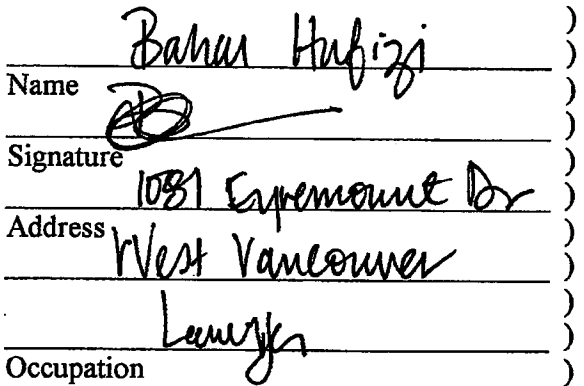 Bahar Hafizi )
Name )
)
Signature )
1081 Eyremount Dr )
Address )
West Vancouver )
)
Lawyer )
Occupation )